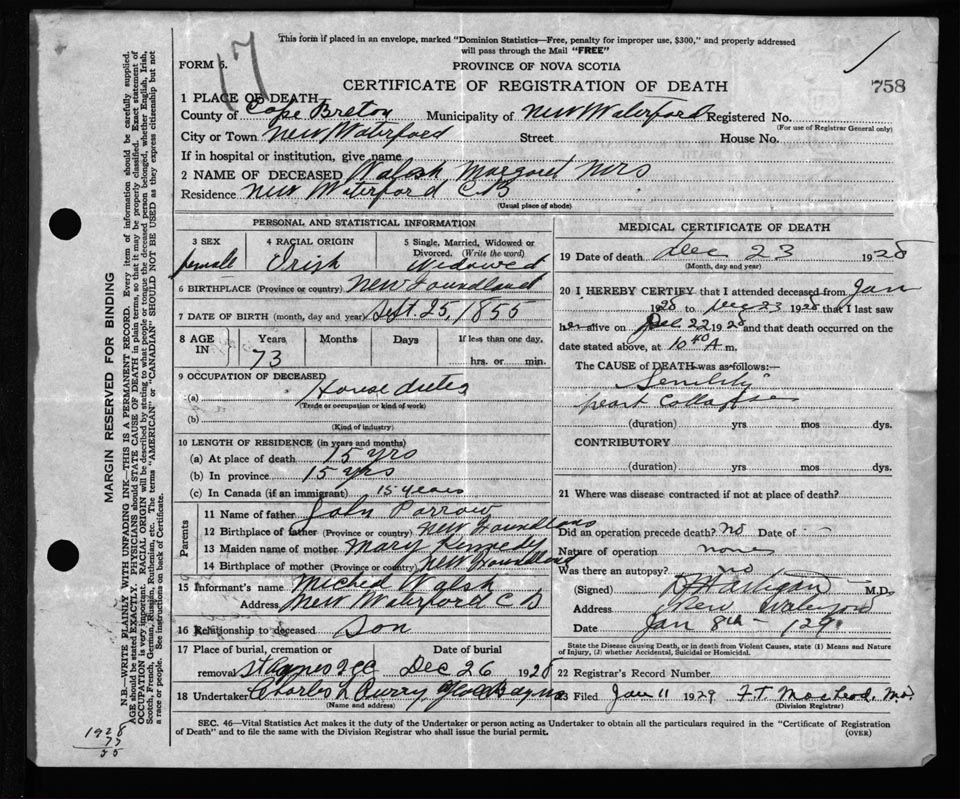 17
This form if placed in an envelope, marked "Dominion Statistics—Free, penalty for improper use, $300," and properly addressed
will pass through the Mail "FREE"
FORM 6.
PROVINCE OF NOVA SCOTIA
CERTIFICATE OF REGISTRATION OF DEATH
758
1 PLACE OF DEATH
County of Cape Breton Municipality of New Waterford Registered No.
(For use of Registrar General only)
City or Town New Waterford Street House No.
If in hospital or institution, give name
2 NAME OF DECEASED Walsh Margaret Mrs
Residence New Waterford C.B
(Usual place of abode)
PERSONAL AND STATISTICAL INFORMATION
3 SEX 4 RACIAL ORIGIN 5 Single, Married, Widowed or Divorced. (Write the word)
female Irish Widowed
6 BIRTHPLACE (Province or country) New Foundland
7 DATE OF BIRTH (month, day and year) Sept. 25, 1855
8 AGE IN Years Months Days If less than one day,
73 hrs. or min.
9 OCCUPATION OF DECEASED
(a) House duties
(Trade or occupation or kind of work)
(b)
(Kind of industry)
10 LENGTH OF RESIDENCE (in years and months)
(a) At place of death 15 yrs
(b) In province 15 yrs
(c) In Canada (if an immigrant) 15 years
Parents
11 Name of father John Parrow
12 Birthplace of father (Province or country) New Foundland
13 Maiden name of mother Mary Kennedy
14 Birthplace of mother (Province or country) New Foundland
15 Informant's name Micheal Walsh
Address New Waterford C B
16 Relationship to deceased Son
17 Place of burial, cremation or Date of burial
removal St Agnes Dec 26 1928
18 Undertaker Charles Curry Glace Bay
(Name and address)
MEDICAL CERTIFICATE OF DEATH
19 Date of death Dec 23 1928
(Month, day and year)
20 I HEREBY CERTIFY that I attended deceased from Jan
1928 to Dec 23 1928 that I last saw
her alive on Dec 22 1928 and that death occurred on
date stated above, at 10 40 A m.
The CAUSE of DEATH was as follows:—
Senility
heart Collapse
(duration) yrs mos dys.
CONTRIBUTORY
(duration) yrs mos dys.
21 Where was disease contracted if not at place of death?
Did an operation precede death? No Date of
Nature of operation none
Was there an autopsy? no
(Signed) Hartigan M.D.
Address New Waterford
Date Jan 8th - 129
State the Disease causing Death, or in death from Violent Causes, state (1) Means and Nature
of Injury, (2) whether Accidental, Suicidal or Homicidal.
22 Registrar's Record Number
23 Filed Jan 11 1929 F.T. MacLeod. Mo
(Division Registrar)
SEC. 46—Vital Statistics Act makes it the duty of the Undertaker or person acting as Undertaker to obtain all the particulars required in the "Certificate of Registration
of Death" and to file the same with the Division Registrar who shall issue the burial permit.
(OVER)
MARGIN RESERVED FOR BINDING
N.B.—WRITE PLAINLY WITH UNFADING INK—THIS IS A PERMANENT RECORD. Every item of information should be carefully supplied.
AGE should be stated EXACTLY. PHYSICIANS should STATE CAUSE OF DEATH in plain terms, so that it may be properly classified. Exact statement of
OCCUPATION is very important. RACIAL ORIGIN will be described by stating to what people or tongue the deceased person belonged, whether English, Irish,
Scotch, French, German, Russian, Ruthenian, etc. The terms "AMERICAN" or "CANADIAN" SHOULD NOT BE USED as they express citizenship but not
a race or people. See instructions on back of Certificate.
1928
73
55